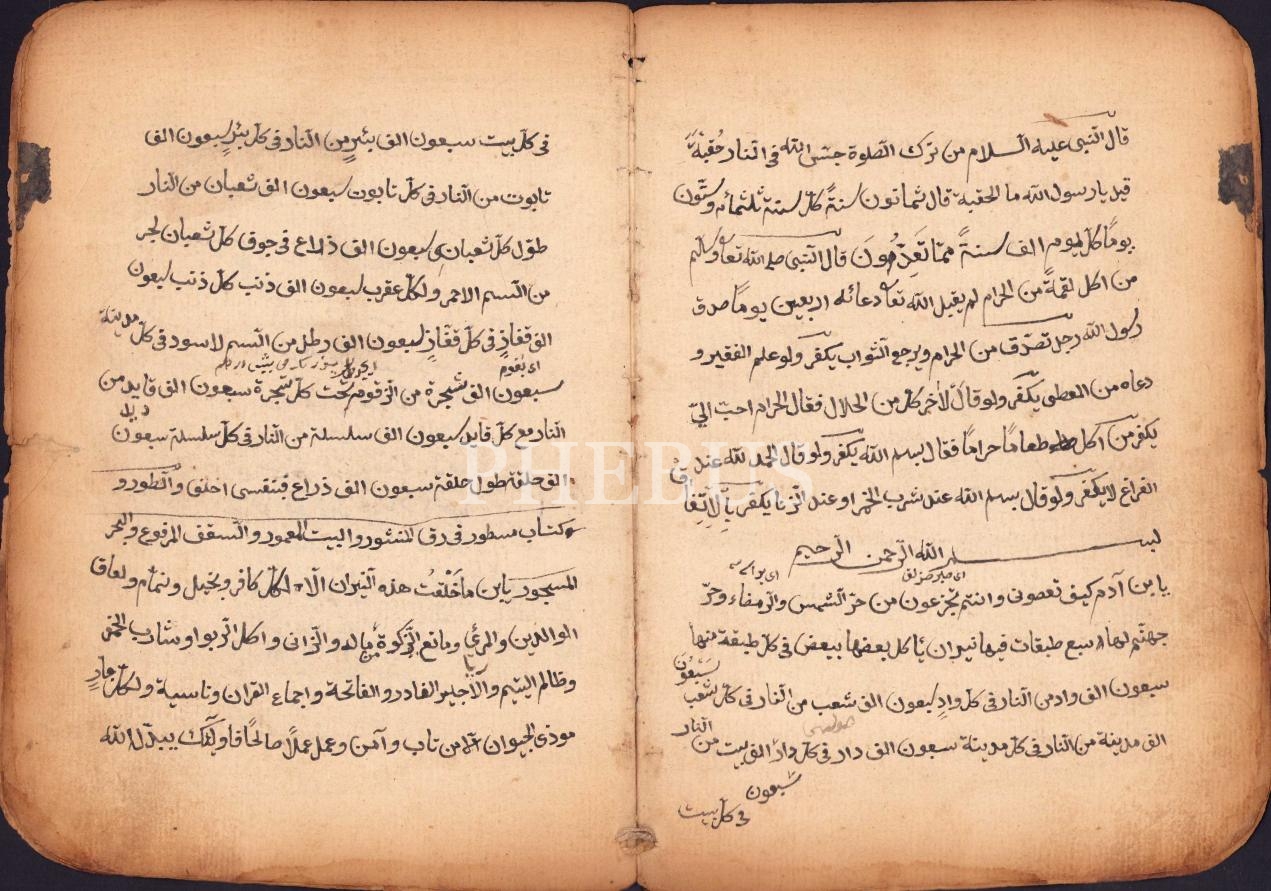 قال النبى عليه السلام من ترك الصلوة حبس الله فى النار حُقبةً
قيل يا رسول الله ما الحقبة قال ثمانون سنةً كل سنة ثلثمائه وستون
يومًا كل يوم الف سنةً مما تَعدّونَ قال النبى صلى الله تعا وسلم
من اكل لقمةً من الحرام لم يقبل الله تعا دعائه اربعين يومًا صدق
رسول الله رجل تصدّق من الحرام ويرجع الثواب يكفر ولو علم الفقير و
دعاه من المعطى يكفر ولو قال لآخر كل من الحلال فقال الحرام احبّ الىّ
يكفر من اكل طعامًا حرامًا فقال بسم الله يكفر ولو قال الحمد لله عند
الفراغ لا يكفر ولو قال بسم الله عند شرب الخمر او عند الزنا يكفر بالاتفاق
بسم الله الرحمن الرحيم
يا بن آدم كيف تعصونى وانتم تجزعون من حرّ الشمس والرمضاء وحرّ
جهنم لها سبع طبقات فيها نيران ياكل بعضها ببعض فى كل طبقة منها
سبعون الف واد من النار فى كل وادٍ سبعون الف شعب من النار فى كل شعب سَبْعُونَ
الف مدينة من النار فى كل مدينة سبعون الف دار فى كل دار الف بيت من النار
سَبعون
فى كل بيت
فى كل بيت سبعون الف بئرٍ من النار فى كل بئرٍ سبعون الف
تابوت من النار فى كل تابوت سبعون الف ثعبان من النار
طول كل ثعبان سبعون الف ذراع فى جوف كل ثعبان بحر
من السم الاحمر ولكل عقرب سبعون الف ذنب كل ذنب سبعون
الف قفاز فى كل قفازٍ سبعون الف رطل من السم لاسود فى كل مدينة
سبعون الف شجرة من الزقوم تحت كل شجرة سبعون الف قايد من
النار مع كل قايد سبعون الف سلسلة من النار فى كل سلسلة سبعون
الف حلقة طول حلقة سبعون الف ذراع فبنفسى احلق والطور و
كتاب مسطور فى رق المنشور والبيت المعمور والسقف المرفوع والبحر
المسجور يا بن ما خَلَقتُ هذه النيران الّا لكل كافر وبخيل ونمام وعاق
الوالدين والمرئى ومانع الزكوة ماله والزانى واكل الربوا وشارب الخمر
وظالم اليتيم والاجير الغادر و الفاتحة واجماع القران وناسية ولكل
موذى الحيوان الّا من تاب وآمن وعمل عملًا صالحًا فاولئك يبدل الله
PHEBUS